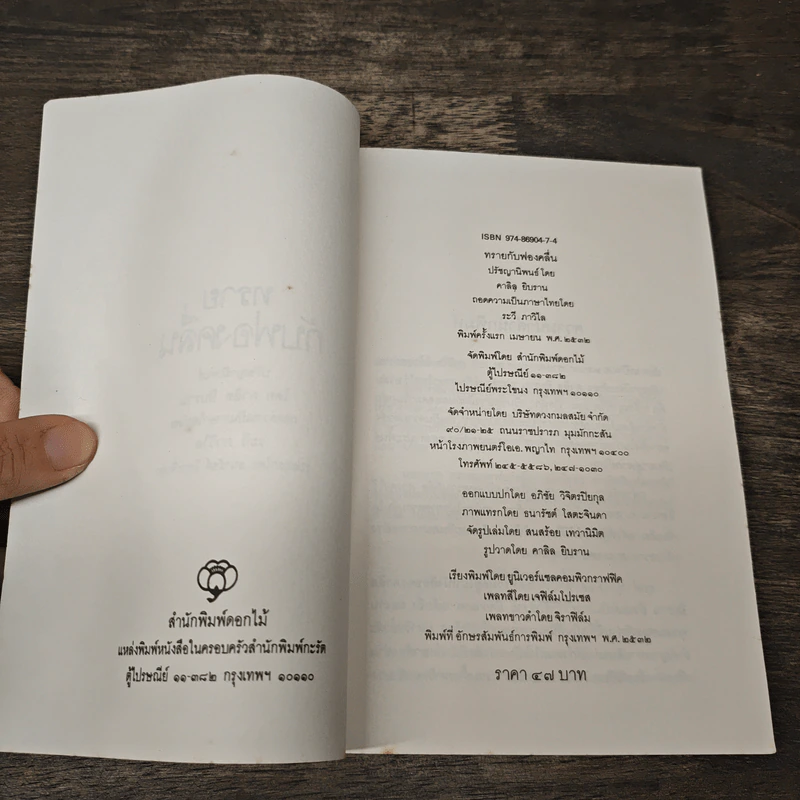 สำนักพิมพ์ดอกไม้
แหล่งพิมพ์หนังสือในครอบครัวสำนักพิมพ์กะรัต
ตู้ไปรษณีย์ ๑๑-๓๘๒ กรุงเทพฯ ๑๐๑๑๐
ISBN 974-86904-7-4
ทรายกับฟองคลื่น
ปรัชญานิพนธ์ โดย
คาลิล ยิบราน
ถอดความเป็นภาษาไทยโดย
ระวี ภาวิไล
พิมพ์ครั้งแรก เมษายน พ.ศ. ๒๕๓๒
จัดพิมพ์โดย สำนักพิมพ์ดอกไม้
ตู้ไปรษณีย์ ๑๑-๓๘๒
ไปรษณีย์พระโขนง กรุงเทพฯ ๑๐๑๑๐
จัดจำหน่ายโดย บริษัทดวงกมลสมัย จำกัด
๙๐/๒๑-๒๕ ถนนราชปรารภ มุมมักกะสัน
หน้าโรงภาพยนตร์โอเอ. พญาไท กรุงเทพฯ ๑๐๔๐๐
โทรศัพท์ ๒๔๕-๕๕๘๖, ๒๔๗-๑๐๓๐
ออกแบบปกโดย อภิชัย วิจิตรปิยกุล
ภาพแทรกโดย ธนารัชต์ โสตะจินดา
จัดรูปเล่มโดย สนสร้อย เทวานิมิต
รูปวาดโดย คาลิล ยิบราน
เรียงพิมพ์โดย ยูนิเวอร์แซลคอมพิวกราฟฟิค
เพลทสีโดย เจฟิล์มโปรเซส
เพลทขาวดำโดย จิราฟิล์ม
พิมพ์ที่ อักษรสัมพันธ์การพิมพ์ กรุงเทพฯ พ.ศ. ๒๕๓๒
ราคา ๔๗ บาท